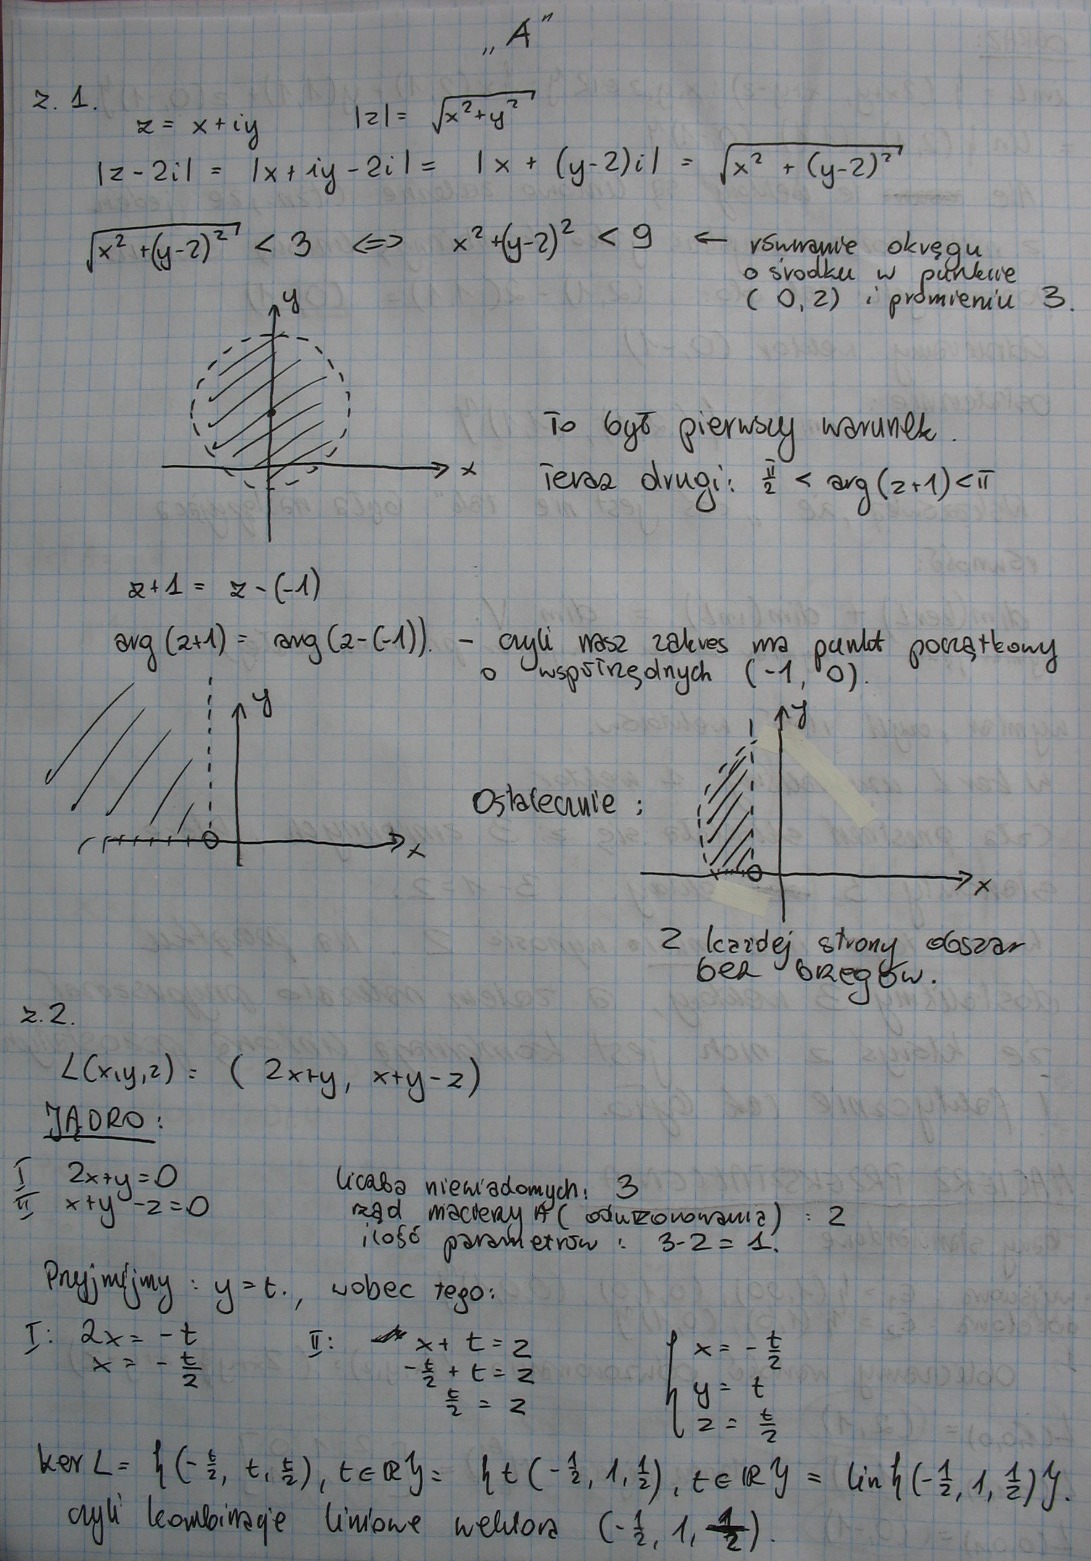 „A”
z. 1.
z = x+iy |z| = √(x²+y²)
|z-2i| = |x+iy-2i| = |x + (y-2)i| = √(x² + (y-2)²)
√(x²+(y-2)²) < 3 <=> x²+(y-2)² < 9 ← równanie okręgu
o środku w punkcie
(0,2) i promieniu 3.
y
x
To był pierwszy warunek.
Teraz drugi: π/2 < arg(z+1) < π
z+1 = z-(-1)
arg(z+1) = arg(z-(-1)). - czyli nasz zakres ma punkt początkowy
o współrzędnych (-1, 0).
y
x
Ostatecznie:
y
x
Z każdej strony obszar
bez brzegów.
z. 2.
L(x,y,z) = (2x+y, x+y-z)
JĄDRO:
I 2x+y=0
II x+y-z=0
liczba niewiadomych: 3
rząd macierzy A (odwzorowania): 2
ilość parametrów: 3-2=1.
Przyjmijmy: y=t., wobec tego:
I: 2x = -t
x = -t/2
II: x + t = z
-t/2 + t = z
t/2 = z
{ x = -t/2
y = t
z = t/2
ker L = {(-t/2, t, t/2), t∈ℝ} = {t(-1/2, 1, 1/2), t∈ℝ} = lin{(-1/2, 1, 1/2)}.
czyli kombinacje liniowe wektora (-1/2, 1, 1/2).